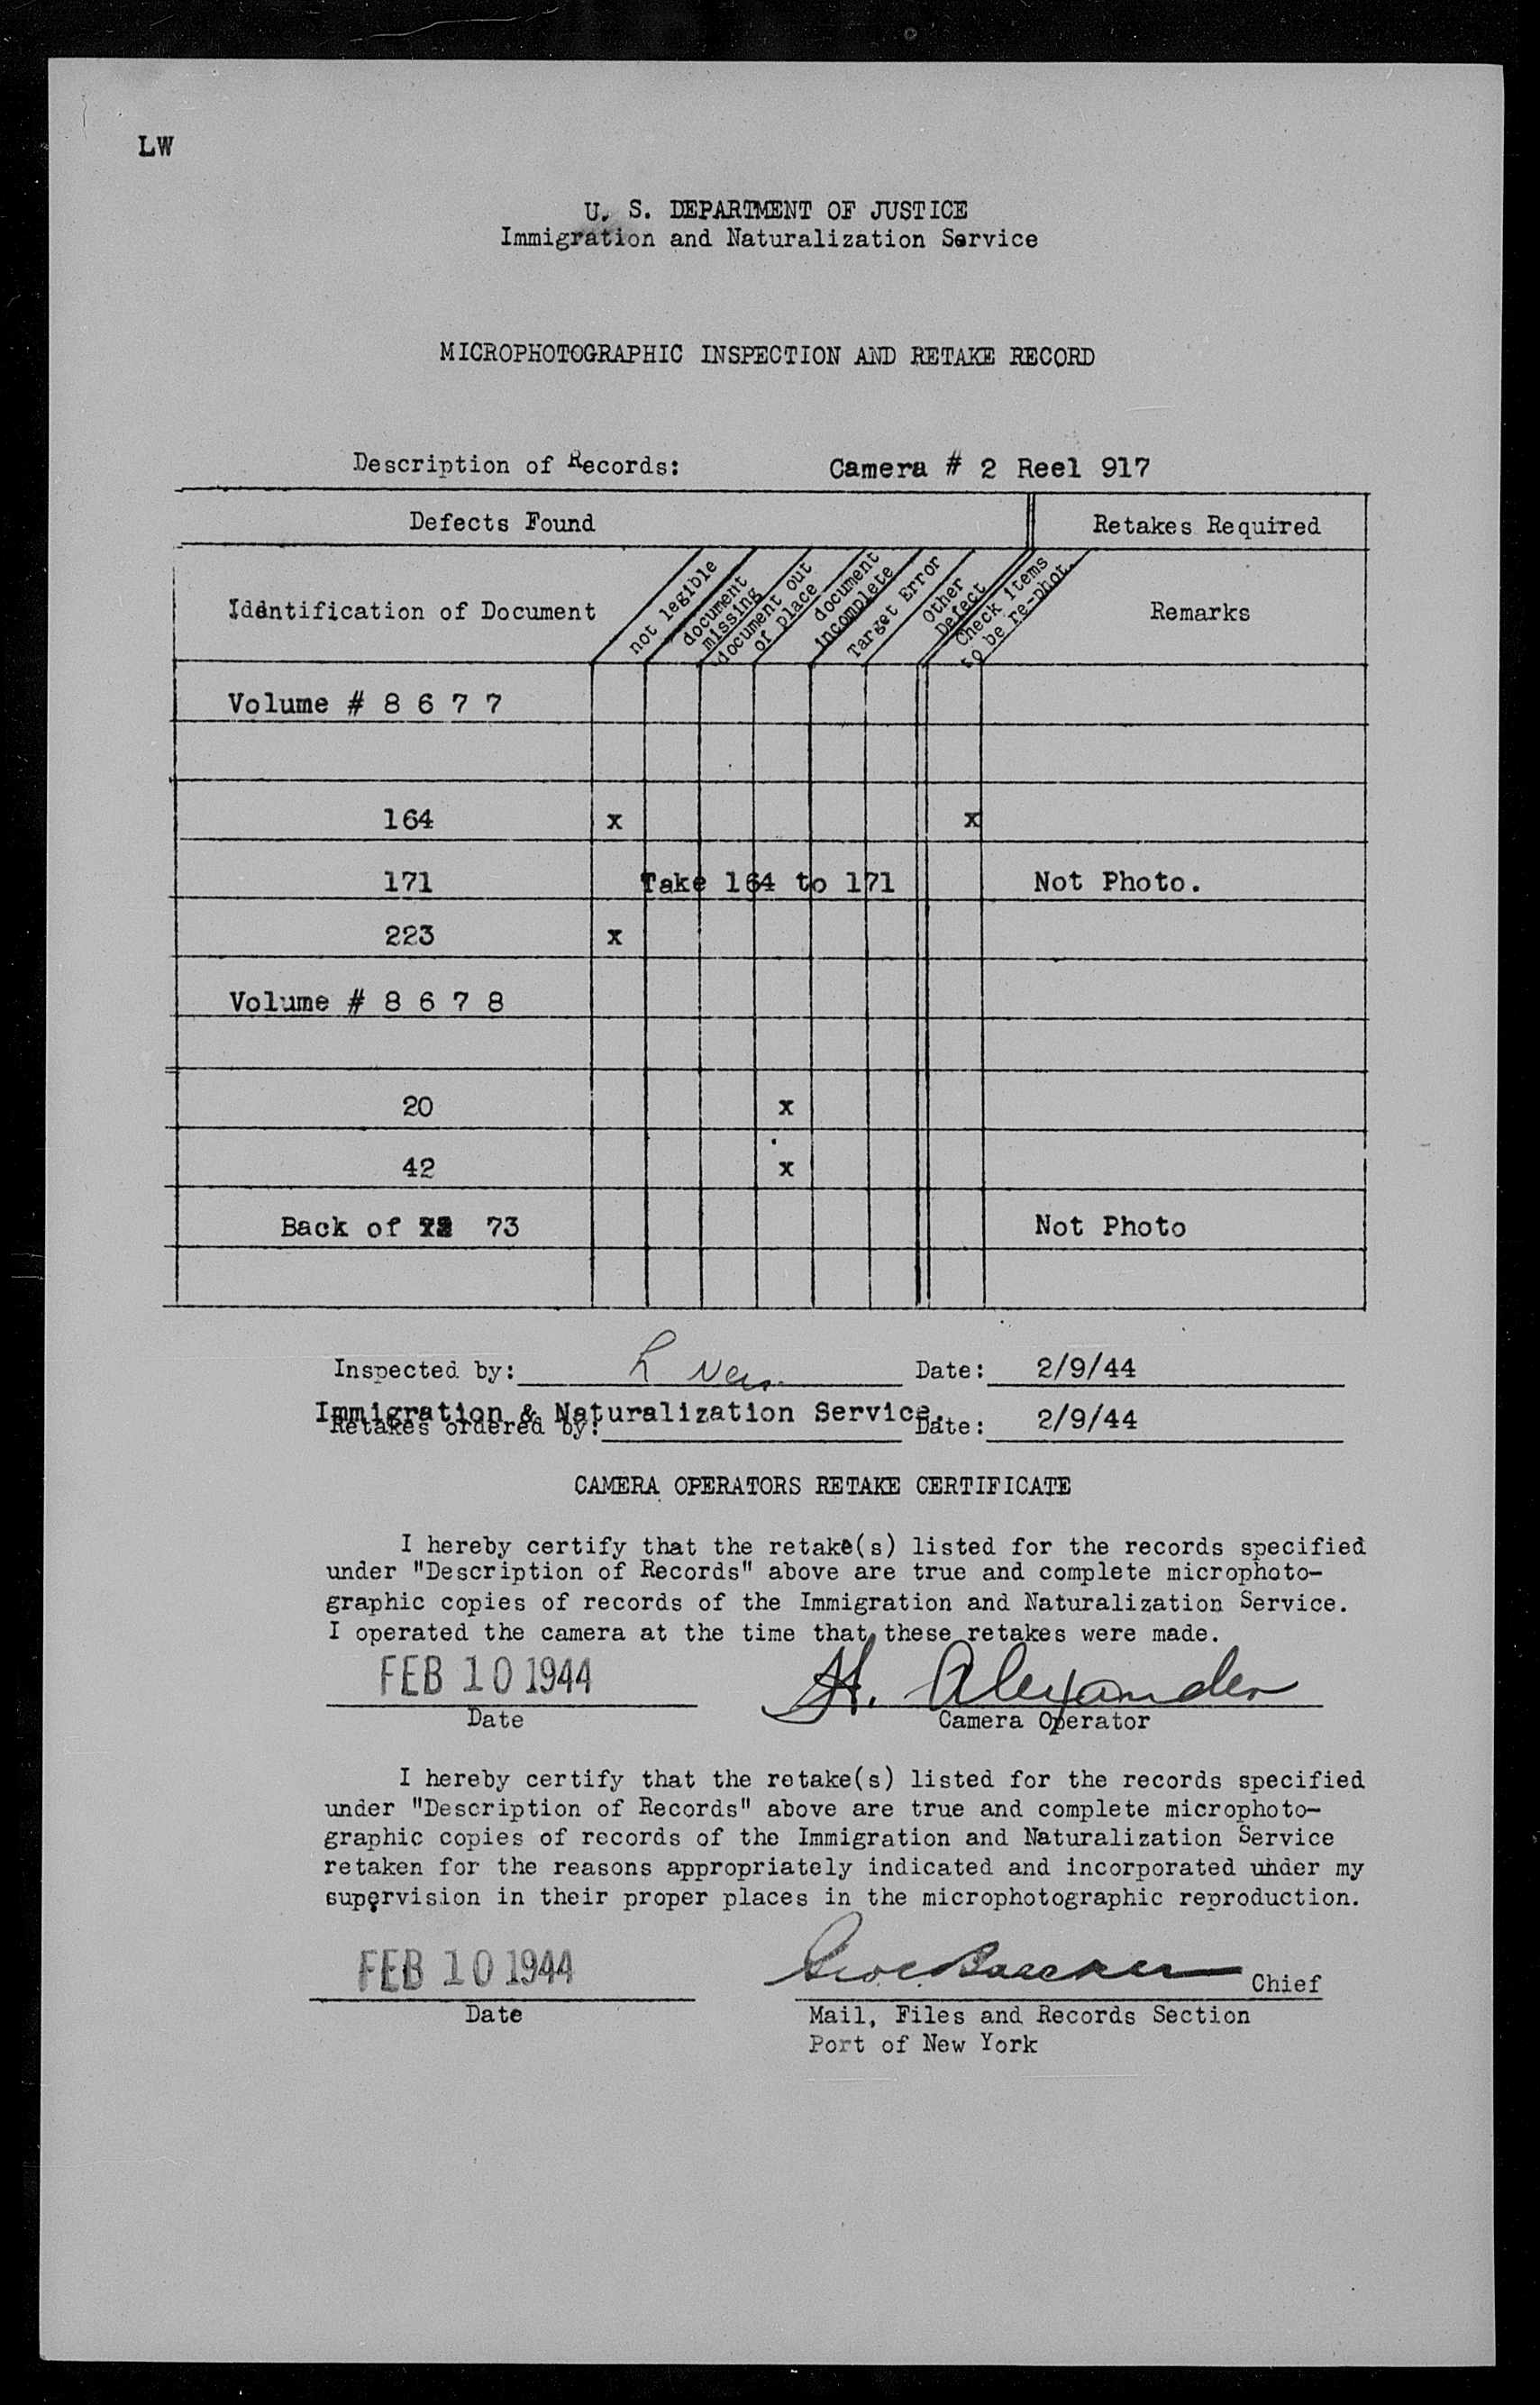 LW
U. S. DEPARTMENT OF JUSTICE
Immigration and Naturalization Service
MICROPHOTOGRAPHIC INSPECTION AND RETAKE RECORD
Description of Records: Camera # 2 Reel 917
Defects Found Retakes Required
Identification of Document
not legible
document
missing
document out
of place
document
incomplete
Target Error
Other
Defect
Check items
to be re-phot.
Remarks
Volume # 8 6 7 7
164 x x
171 Take 164 to 171 Not Photo.
223 x
Volume # 8 6 7 8
20 x
42 x
Back of 73 Not Photo
Inspected by: Date: 2/9/44
Immigration & Naturalization Service.
Retakes ordered by: Date: 2/9/44
CAMERA OPERATORS RETAKE CERTIFICATE
I hereby certify that the retake(s) listed for the records specified
under "Description of Records" above are true and complete microphoto-
graphic copies of records of the Immigration and Naturalization Service.
I operated the camera at the time that these retakes were made.
FEB 10 1944 H. Alexander
Date Camera Operator
I hereby certify that the retake(s) listed for the records specified
under "Description of Records" above are true and complete microphoto-
graphic copies of records of the Immigration and Naturalization Service
retaken for the reasons appropriately indicated and incorporated under my
supervision in their proper places in the microphotographic reproduction.
FEB 10 1944 Chief
Date Mail, Files and Records Section
Port of New York